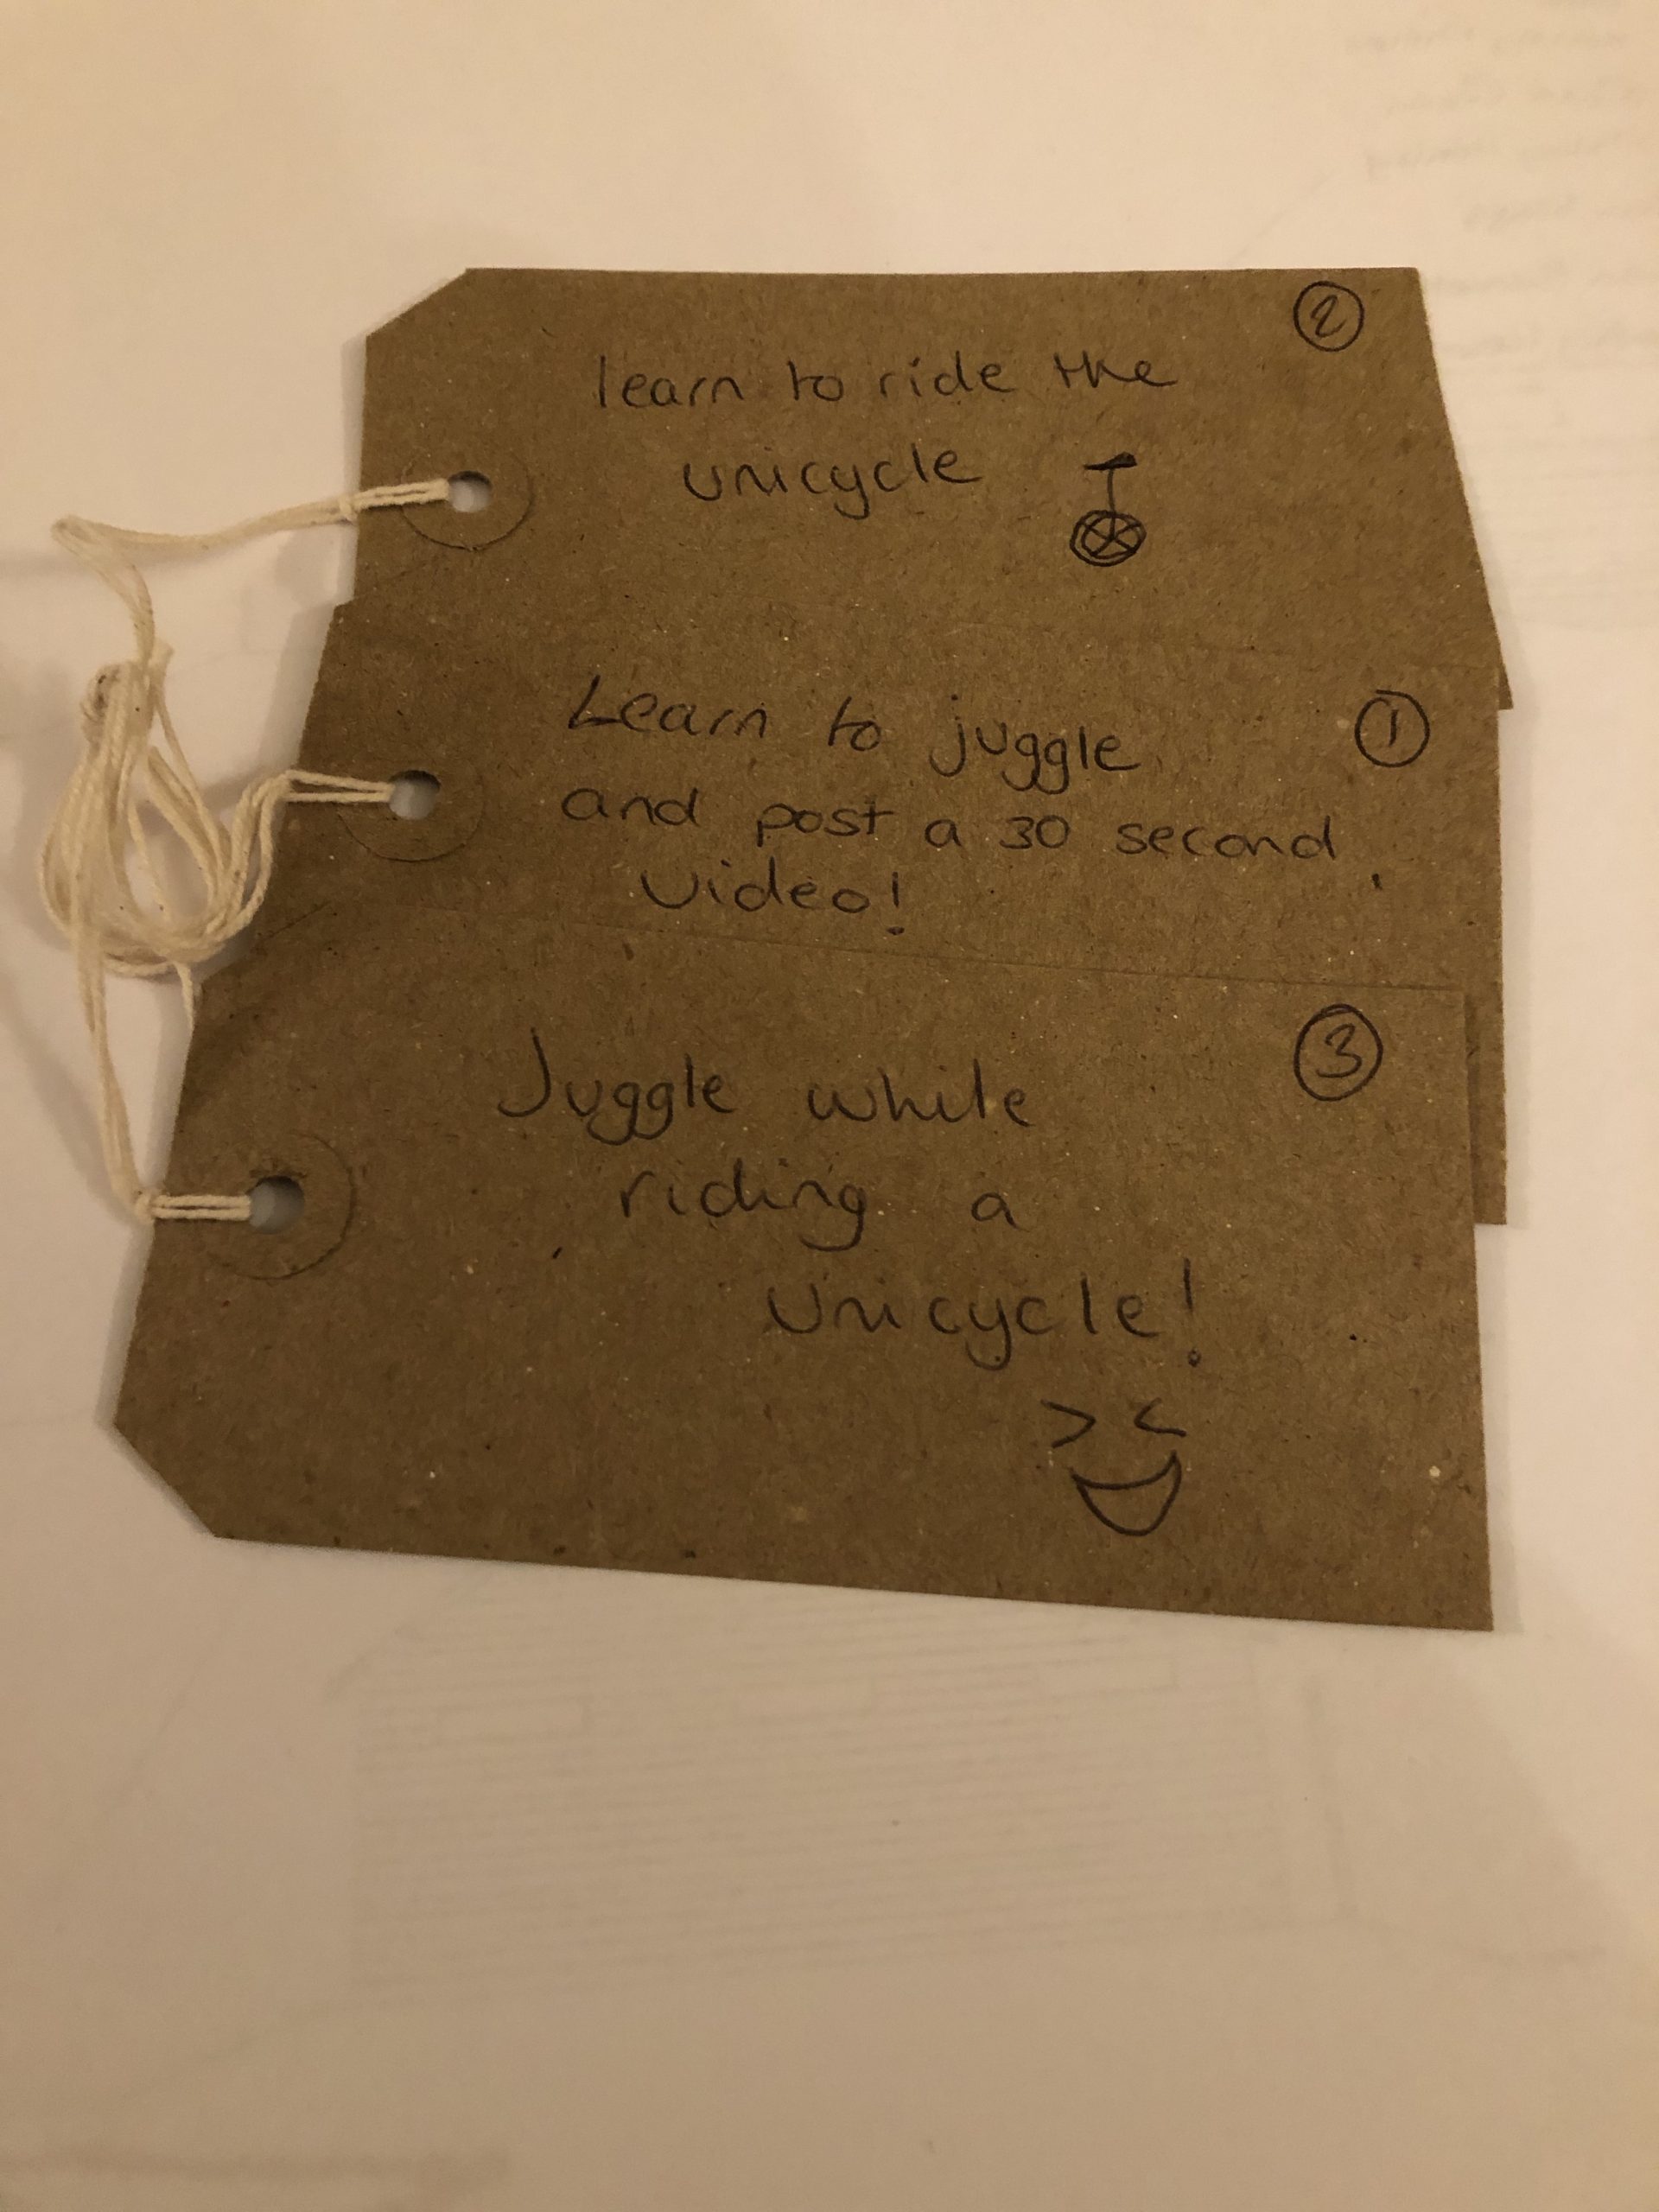 ②
learn to ride the
unicycle
Learn to juggle ①
and post a 30 second
video!
③
Juggle while
riding a
unicycle!